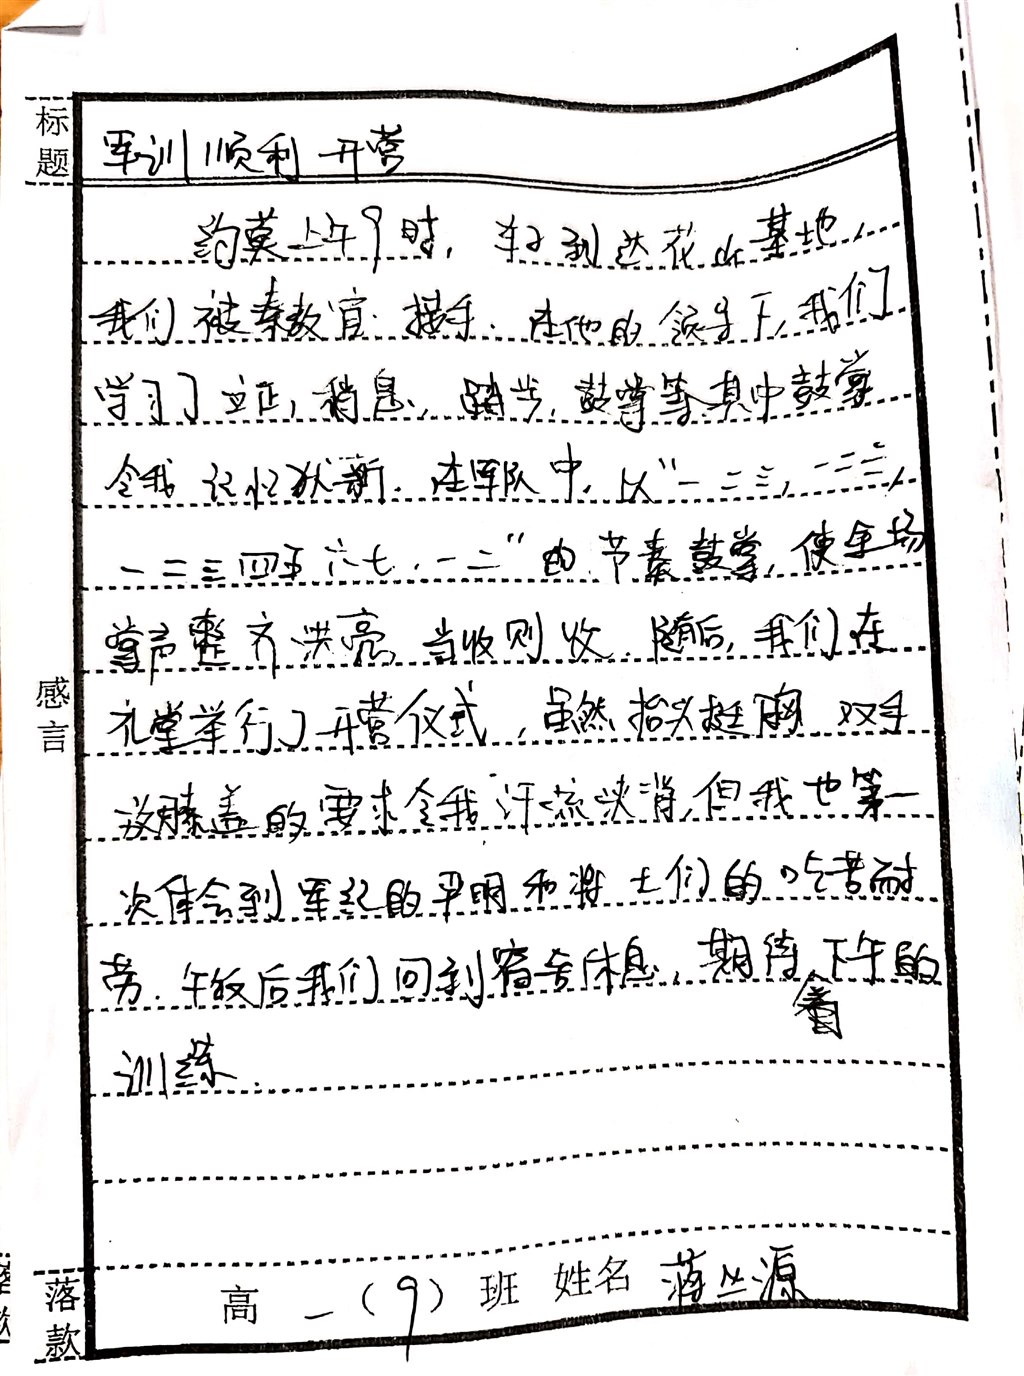 标题
军训顺利开营
约莫上午9时，车子到达花山基地，
我们被秦教官接手．在他的领导下，我们
学习了立正，稍息，踏步，鼓掌等．其中鼓掌
令我记忆犹新．在军队中，以“一二三，一二三，
一二三四五六七，一二”的节奏鼓掌，使全场
掌声整齐洪亮，当收则收．随后，我们在
礼堂举行了开营仪式，虽然抬头挺胸 双手
放膝盖的要求令我汗流浃背，但我也第一
次体会到军纪的严明和将士们的吃苦耐
劳．午饭后我们回到宿舍休息，期待着下午的
训练．
感言
落款
高一（9）班 姓名 蒋丛源